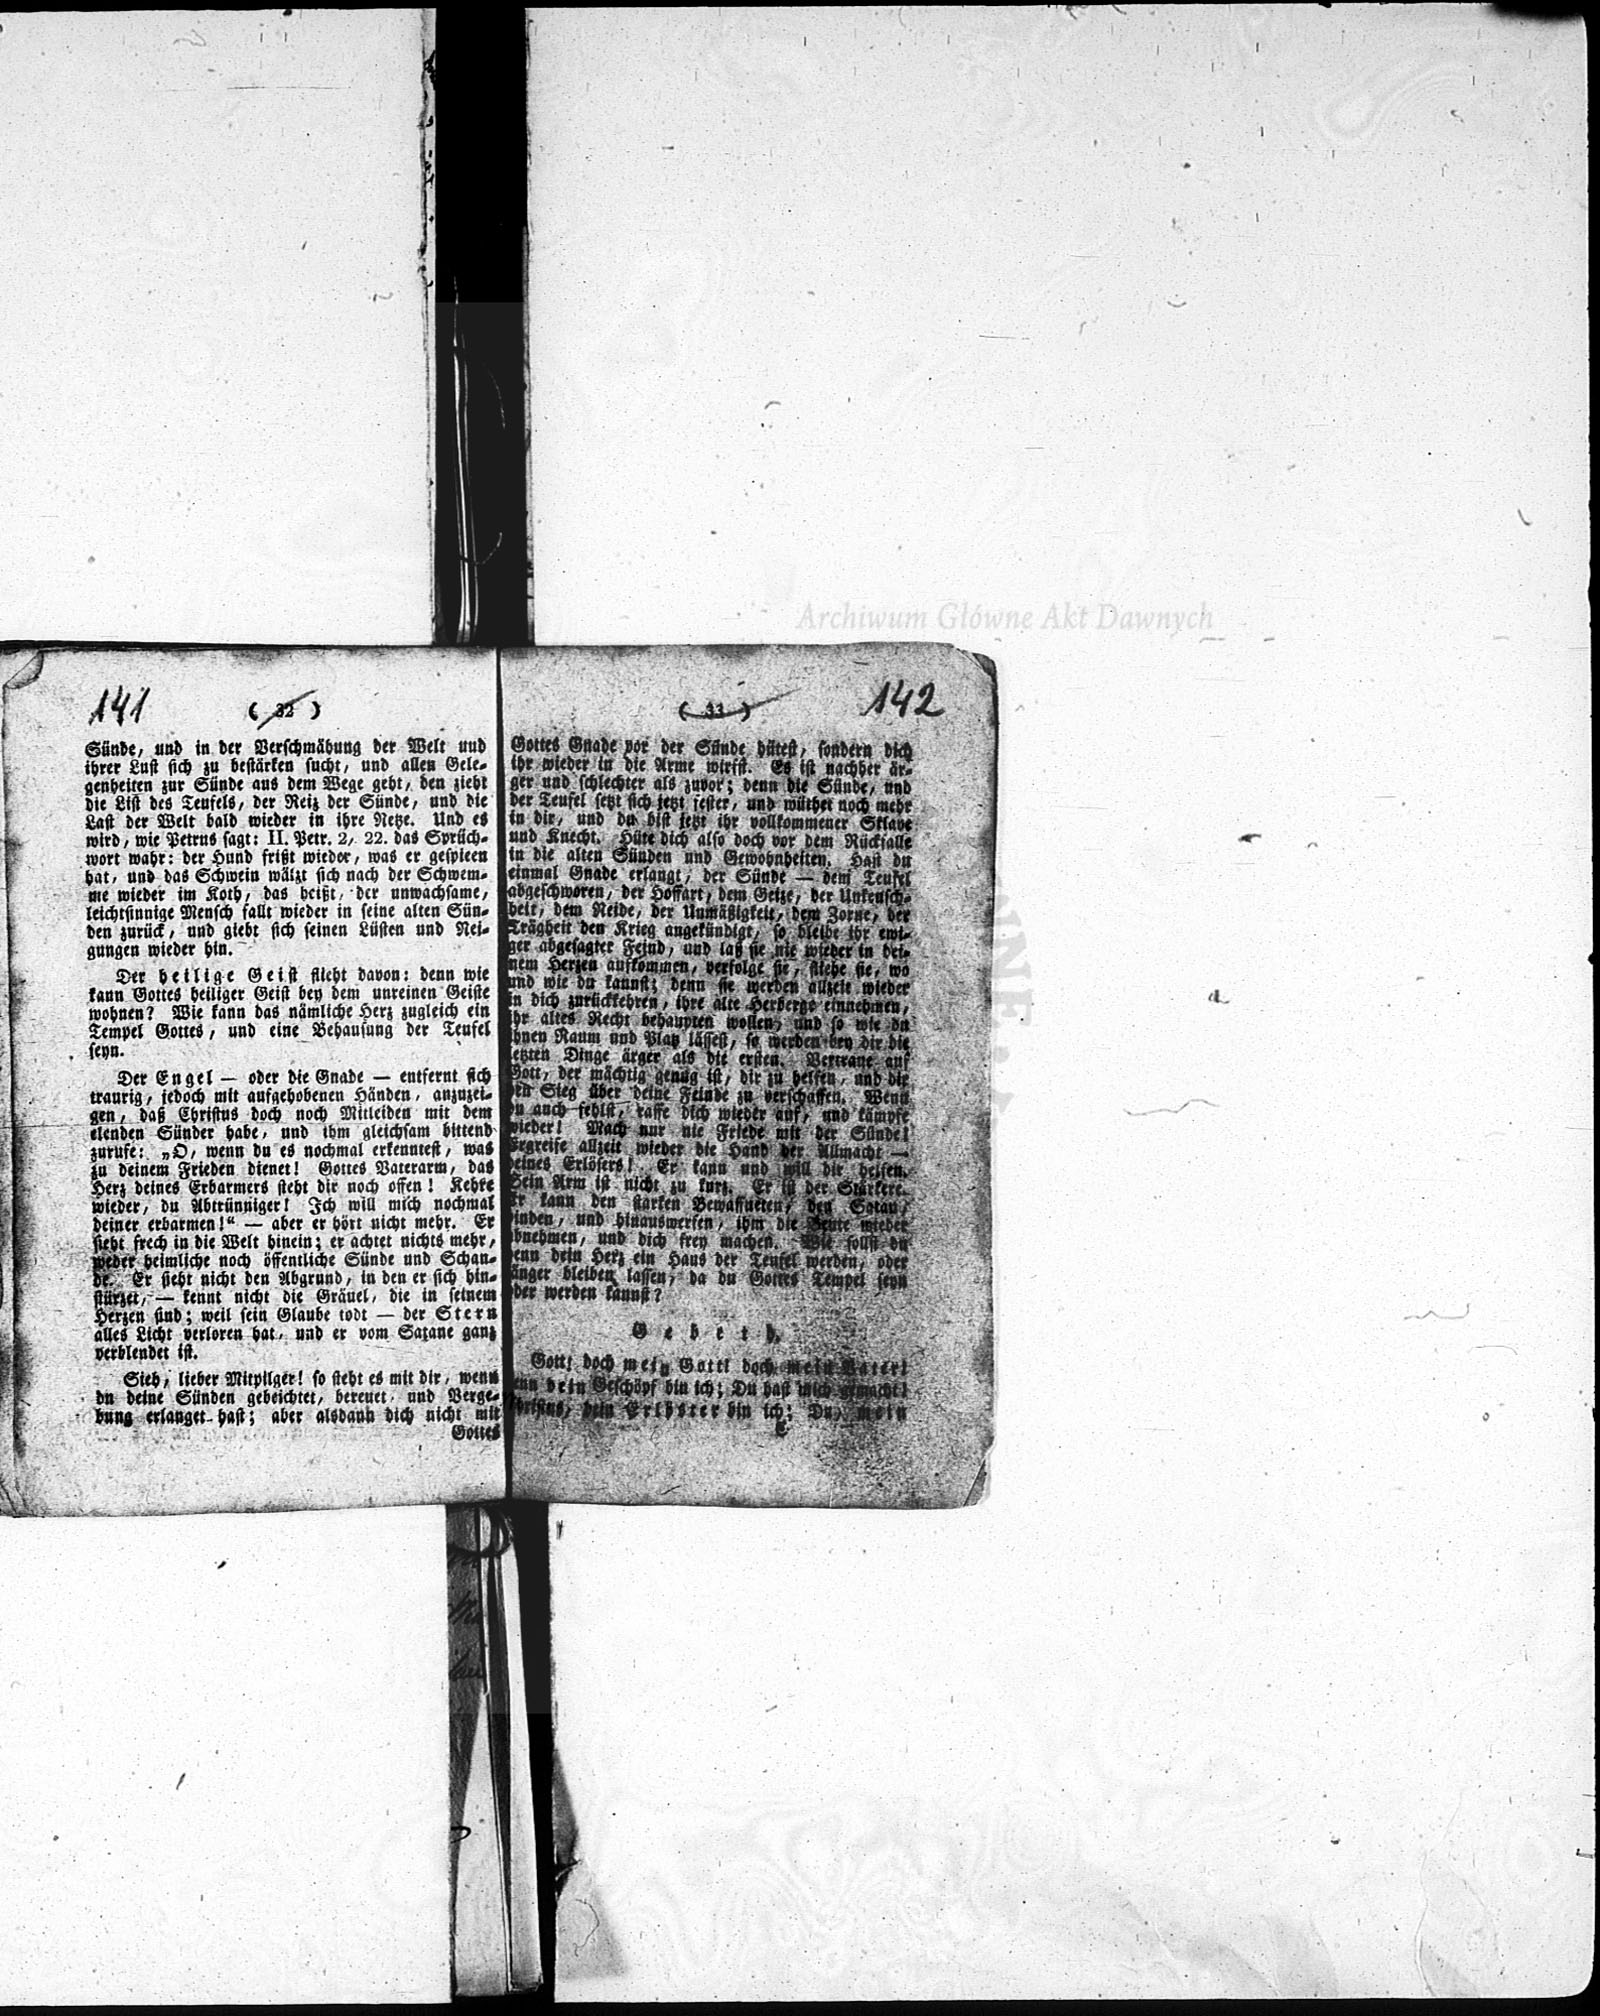 141
( 32 )
Sünde, und in der Verschmähung der Welt und
ihrer Lust sich zu bestärken sucht, und allen Gele-
genheiten zur Sünde aus dem Wege geht, den zieht
die List des Teufels, der Reiz der Sünde, und die
Last der Welt bald wieder in ihre Netze. Und es
wird, wie Petrus sagt: II. Petr. 2, 22. das Sprüch-
wort wahr: der Hund frißt wieder, was er gespieen
hat, und das Schwein wälzt sich nach der Schwem-
me wieder im Koth, das heißt, der unwachsame,
leichtsinnige Mensch fällt wieder in seine alten Sün-
den zurück, und giebt sich seinen Lüsten und Nei-
gungen wieder hin.
Der heilige Geist flieht davon: denn wie
kann Gottes heiliger Geist bey dem unreinen Geiste
wohnen? Wie kann das nämliche Herz zugleich ein
Tempel Gottes, und eine Behausung der Teufel
seyn.
Der Engel — oder die Gnade — entfernt sich
traurig, jedoch mit aufgehobenen Händen, anzuzei-
gen, daß Christus doch noch Mitleiden mit dem
elenden Sünder habe, und ihm gleichsam bittend
zurufe: „O, wenn du es nochmal erkenntest, was
zu deinem Frieden dienet! Gottes Vaterarm, das
Herz deines Erbarmers steht dir noch offen! Kehre
wieder, du Abtrünniger! Ich will mich nochmal
deiner erbarmen!“ — aber er hört nicht mehr. Er
sieht frech in die Welt hinein; er achtet nichts mehr,
weder heimliche noch öffentliche Sünde und Schan-
de. Er sieht nicht den Abgrund, in den er sich hin-
stürzet, — kennt nicht die Gräuel, die in seinem
Herzen sind; weil sein Glaube todt — der Stern
alles Licht verloren hat, und er vom Satane ganz
verblendet ist.
Sieh, lieber Mitpilger! so steht es mit dir, wenn
du deine Sünden gebeichtet, bereuet, und Verge-
bung erlanget hast; aber alsdann dich nicht mit
Gottes
( 33 )
142
Gottes Gnade vor der Sünde hütest, sondern dich
ihr wieder in die Arme wirfst. Es ist nachher är-
ger und schlechter als zuvor; denn die Sünde, und
der Teufel setzt sich jetzt fester, und wüthet noch mehr
in dir, und du bist jetzt ihr vollkommener Sklave
und Knecht. Hüte dich also doch vor dem Rückfalle
in die alten Sünden und Gewohnheiten. Hast du
einmal Gnade erlangt, der Sünde — dem Teufel
abgeschworen, der Hoffart, dem Geize, der Unkeusch-
heit, dem Neide, der Unmäßigkeit, dem Zorne, der
Trägheit den Krieg angekündigt, so bleibe ihr ewi-
ger abgesagter Feind, und laß sie nie wieder in dei-
nem Herzen aufkommen, verfolge sie, fliehe sie, wo
und wie du kannst; denn sie werden allzeit wieder
in dich zurückkehren, ihre alte Herberge einnehmen,
ihr altes Recht behaupten wollen, und so wie du
ihnen Raum und Platz lässest, so werden bey dir die
letzten Dinge ärger als die ersten. Vertraue auf
Gott, der mächtig genug ist, dir zu helfen, und dir
den Sieg über deine Feinde zu verschaffen. Wenn
du auch fehlst, raffe dich wieder auf, und kämpfe
wieder! Mach nur nie Friede mit der Sünde!
Ergreife allzeit wieder die Hand der Allmacht —
deines Erlösers! Er kann und will dir helfen.
Sein Arm ist nicht zu kurz. Er ist der Stärkere.
Er kann den starken Bewaffneten, den Satan,
binden, und hinauswerfen, ihm die Beute wieder
abnehmen, und dich frey machen. Wie sollst du
denn dein Herz ein Haus der Teufel werden, oder
länger bleiben lassen, da du Gottes Tempel seyn
oder werden kannst?
Gebeth.
Gott! doch mein Gott! doch mein Vater!
denn dein Geschöpf bin ich; Du hast mich gemacht!
Christus, dein Erlöster bin ich; Du, mein
C
Archiwum Główne Akt Dawnych